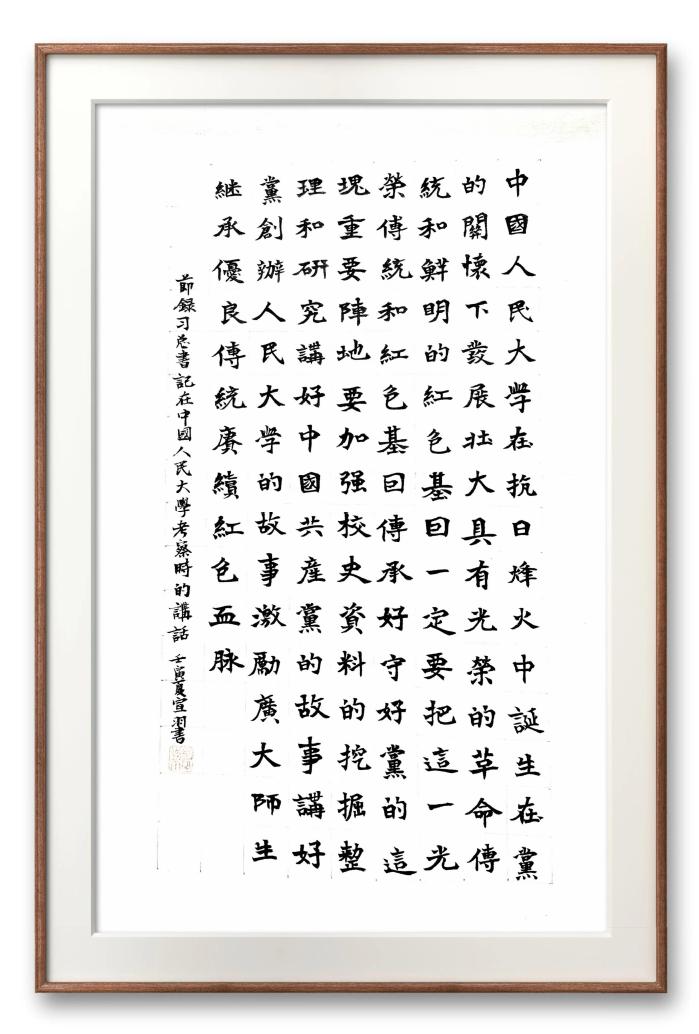 中國人民大学在抗日烽火中誕生在黨
的關懷下發展壮大具有光榮的革命傳
統和鮮明的紅色基囙一定要把這一光
榮傳統和紅色基囙傳承好守好黨的這
塊重要陣地要加强校史資料的挖掘整
理和研究講好中國共産黨的故事講好
黨創辦人民大学的故事激勵廣大師生
継承優良傳統賡續紅色血脉
節録习总書記在中國人民大學考察時的講話 壬寅夏宣羽書